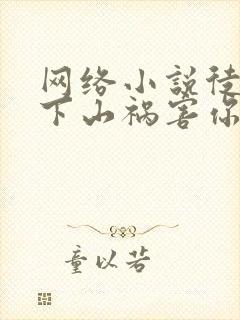 网络小说徒
下山祸害你
童以若